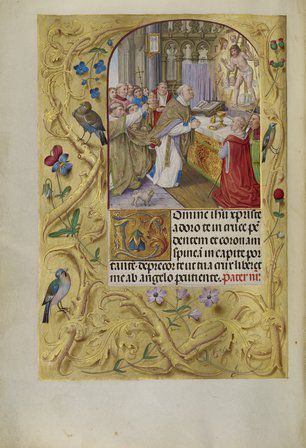 Domine ihũ xpriste
adoro te in cruce pē
dentem et coronam
spineã in capite por
tantē deprecor te ut tua crux liberet
me ab angelo percutiente. Pater nr̃.